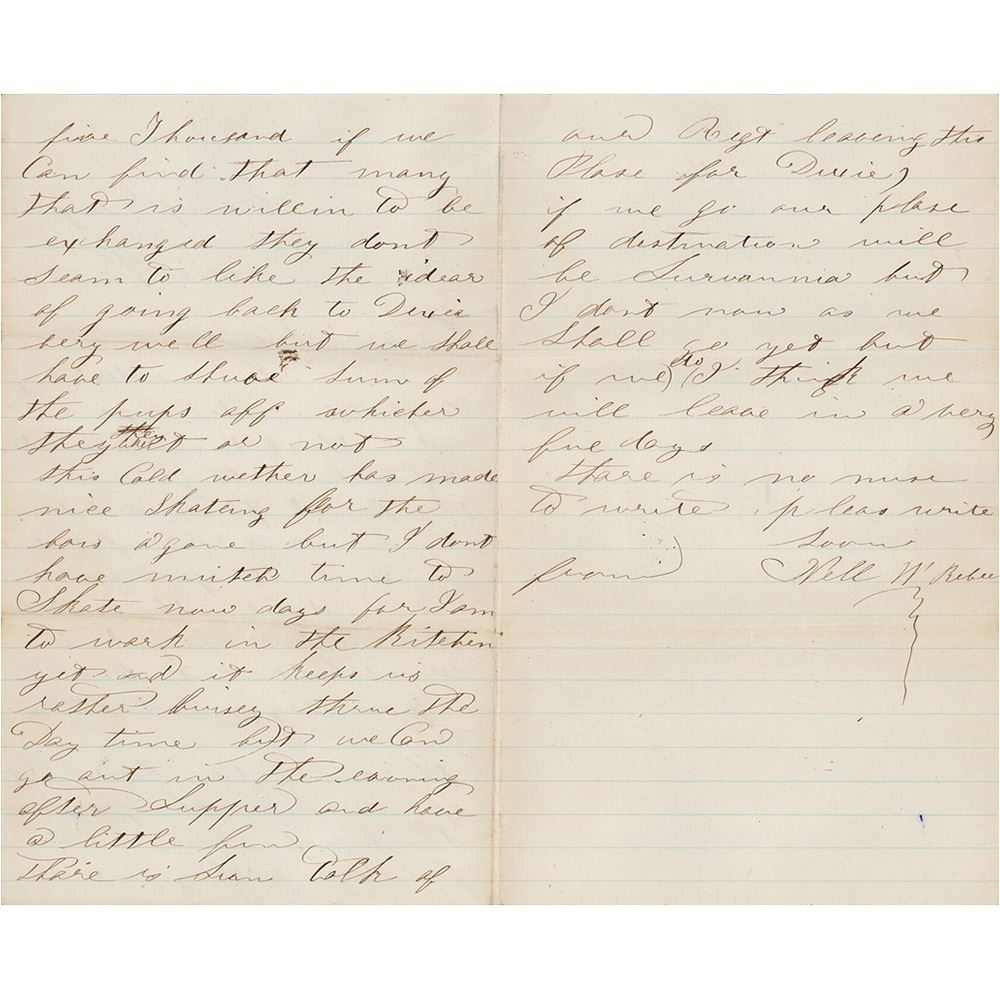 five Thousand if we
Can find that many
that is willin to be
exchanged they dont
seam to like the idear
of going back to Dixie
very well but we shall
have to shuve sum of
the pups off whicher
they or not
this Cold wether has made
nice Skateing for the
bois a gane but I dont
have mutch time to
Skate now days for I am
to work in the Kitchen
yet and it keeps us
rather buisey thrue the
Day time but we Can
go out in the eavning
after Supper and have
a little fun
thare is sum talk of
our Regt leaveing this
Plase for Dixie
if we go our plase
of distination will
be Survannia but
I dont now as we
Shall go yet but
if we do I think we
will leave in a very
fue days
thare is no nuse
to write pleas write
soon
from Nell W